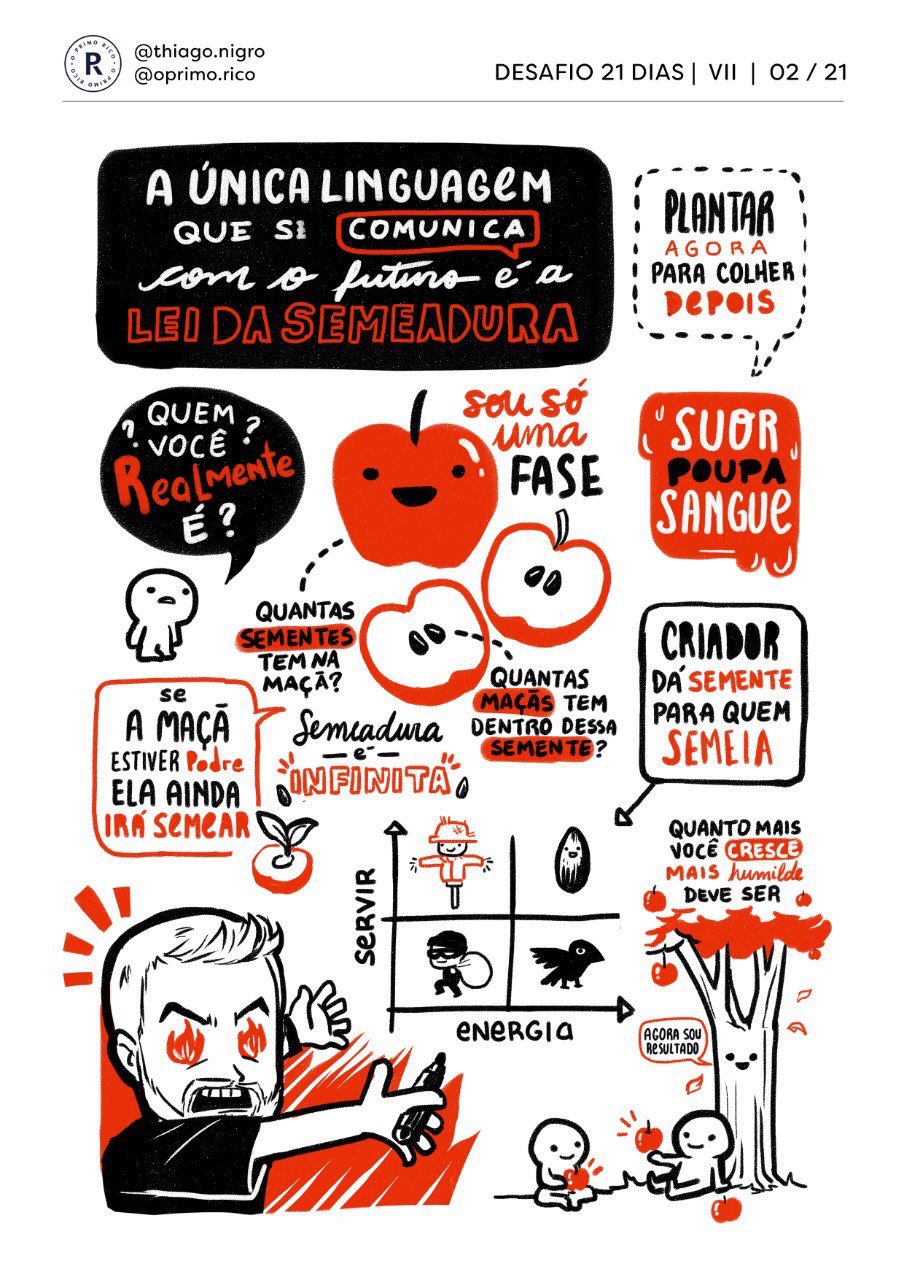 O PRIMO RICO • O PRIMO RICO •
R
@thiago.nigro
@oprimo.rico
DESAFIO 21 DIAS | VII | 02 / 21
A ÚNICA LINGUAGEM
QUE SI COMUNICA
com o futuro é a
LEI DA SEMEADURA
PLANTAR
AGORA
PARA COLHER
DEPOIS
? QUEM ?
VOCÊ
Realmente
É?
sou só
uma
FASE
SUOR
POUPA
SANGUE
QUANTAS
SEMENTES
TEM NA
MAÇÃ?
QUANTAS
MAÇÃS TEM
DENTRO DESSA
SEMENTE?
CRIADOR
DÁ SEMENTE
PARA QUEM
SEMEIA
se
A MAÇÃ
ESTIVER Podre
ELA AINDA
IRÁ SEMEAR
Semeadura
é
INFINITA
QUANTO MAIS
VOCÊ CRESCE
MAIS humilde
DEVE SER
SERVIR
ENERGIA
AGORA SOU
RESULTADO